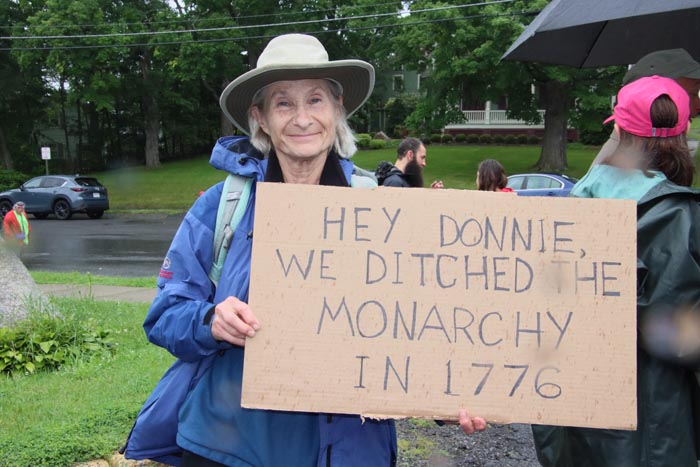 HEY DONNIE,
WE DITCHED THE
MONARCHY
IN 1776